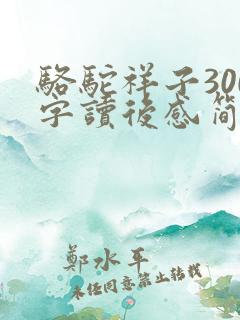 駱駝祥子300
字讀後感 簡
鄭水平
未任同意禁止转载